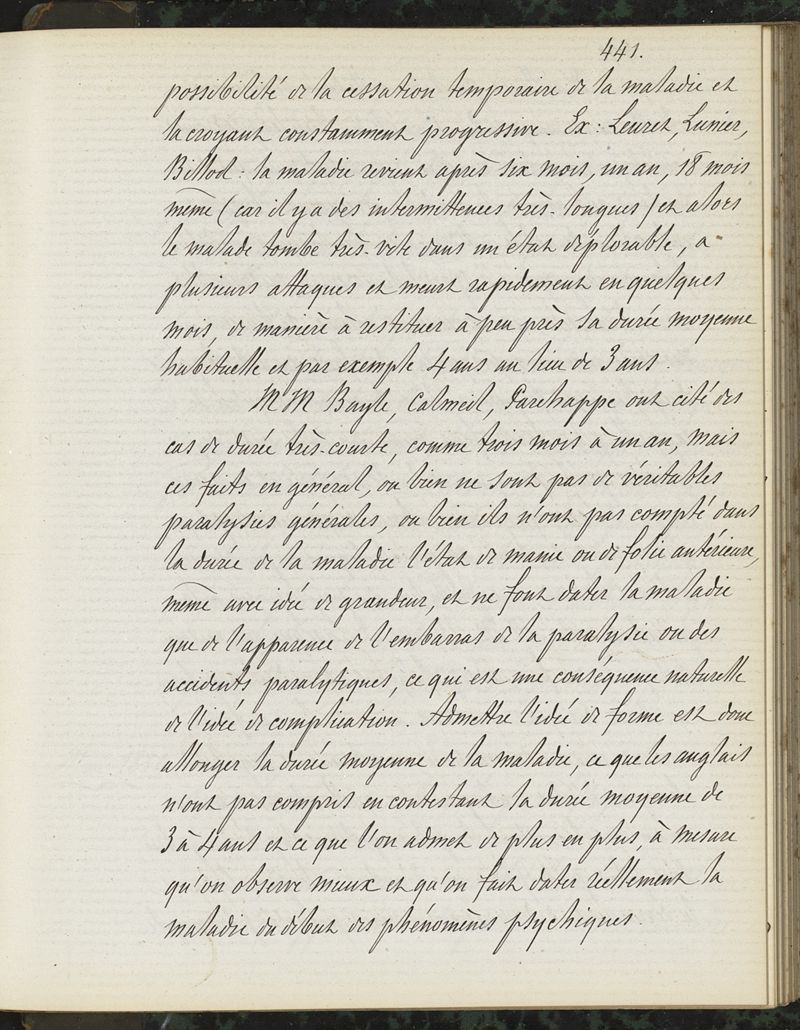 441.
possibilité de la cessation temporaire de la maladie et
la croyant constamment progressive. Ex: Leuret, Lunier,
Billod: la maladie revient après six mois, un an, 18 mois
même (car il y a des intermittences très-longues) et alors
le malade tombe très-vite dans un état déplorable, a
plusieurs attaques et meurt rapidement en quelques
mois, de manière à restituer à peu près sa durée moyenne
habituelle et par exemple 4 ans au lieu de 3 ans.
MM Bayle, Calmeil, Parchappe ont cité des
cas de durée très-courte, comme trois mois à un an, mais
ces faits en général, ou bien ne sont pas de véritables
paralysies générales, ou bien ils n'ont pas compté dans
la durée de la maladie l'état de manie ou de folie antérieure,
même avec idée de grandeur, et ne font dater la maladie
que de l'apparence de l'embarras de la paralysie ou des
accidents paralytiques, ce qui est une conséquence naturelle
de l'idée de complication. Admettre l'idée de forme est donc
allonger la durée moyenne de la maladie, ce que les anglais
n'ont pas compris en contestant la durée moyenne de
3 à 4 ans et ce que l'on admet de plus en plus, à mesure
qu'on observe mieux et qu'on fait dater réellement la
maladie du début des phénomènes psychiques.